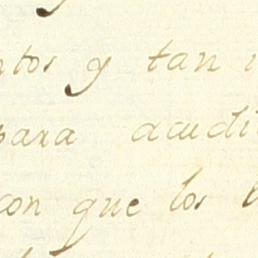 ntos y tan
para acudi
con que los